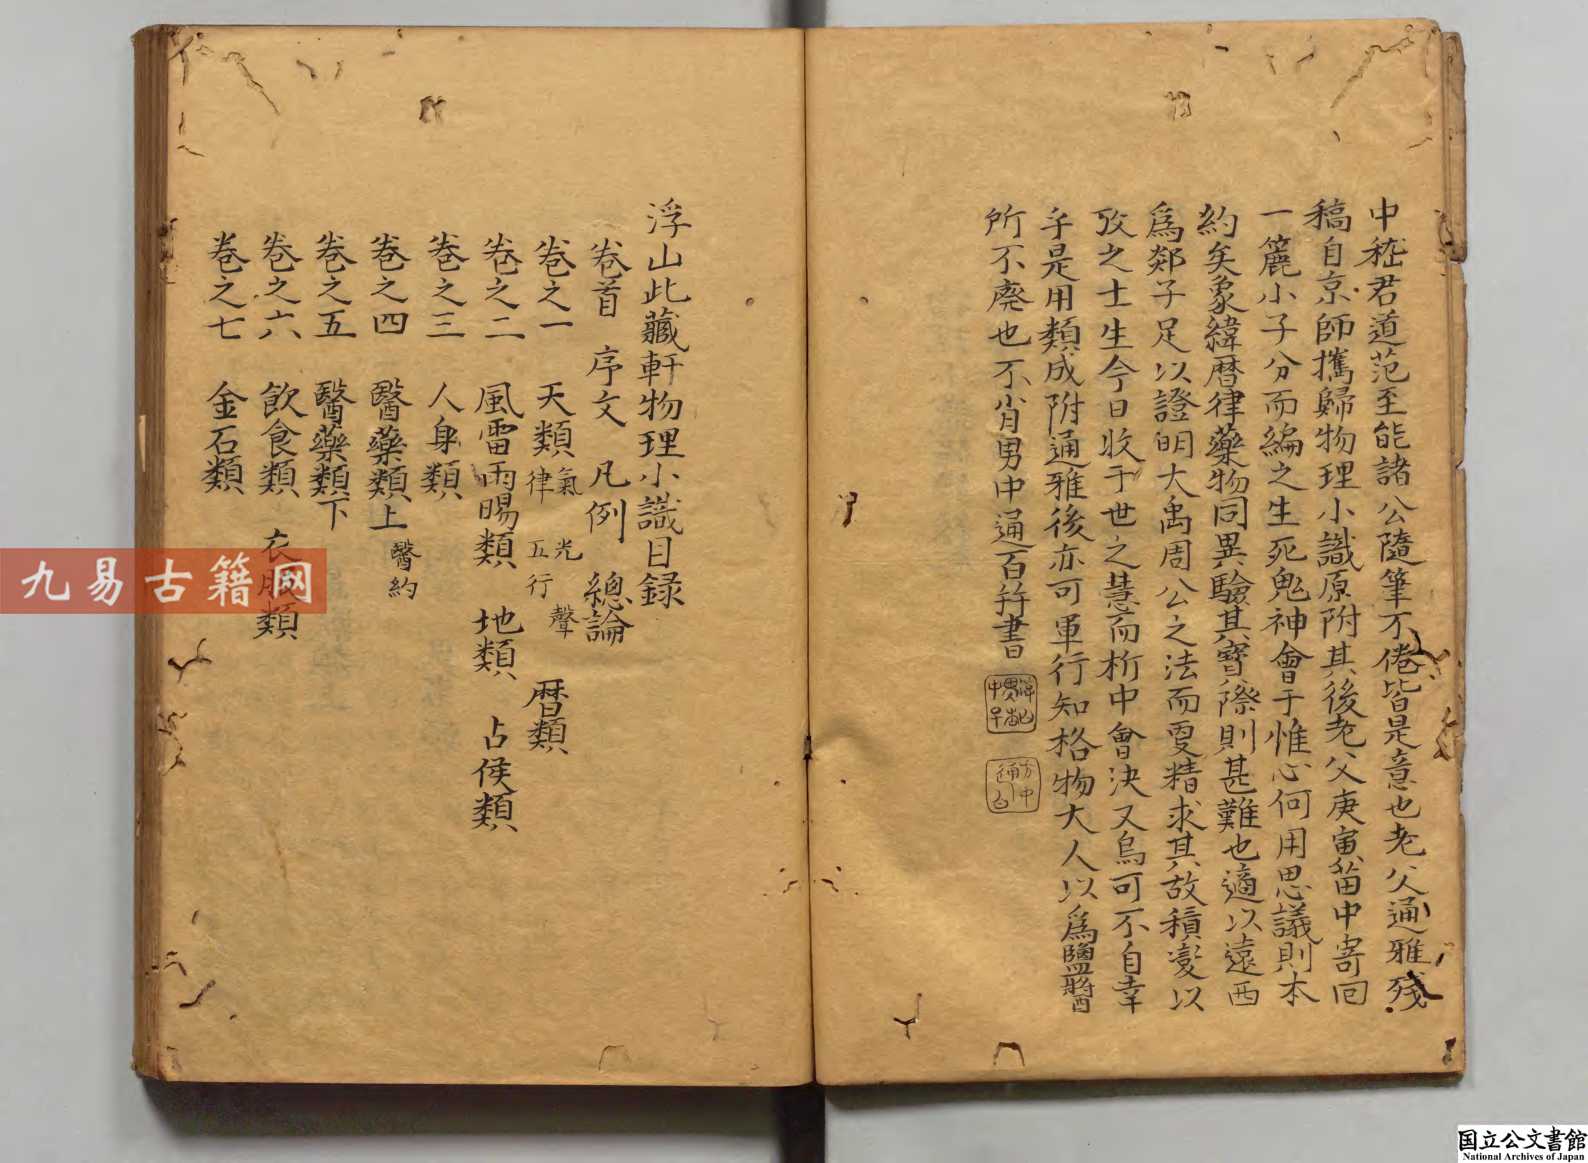 中嵇君道范至能諸公隨筆不倦皆是意也老父通雅殘
稿自京師攜歸物理小識原附其後老父庚寅苗中寄回
一簏小子分而編之生死鬼神會于惟心何用思議則本
約矣象緯曆律藥物同異驗其實際則甚難也適以遠西
為郯子足以證明大禹周公之法而更精求其故積變以
攷之士生今日收千世之慧而析中會決又烏可不自幸
乎是用類成附通雅後亦可單行知格物大人以為鹽醬
所不廢也不肖男中通百拜書
方中
通白
浮山此藏軒物理小識目錄
卷首 序文 凡例 總論
卷之一 天類 氣 光 聲 律 五行 曆類
卷之二 風雷雨暘類 地類 占候類
卷之三 人身類
卷之四 醫藥類上 醫約
卷之五 醫藥類下
卷之六 飲食類 衣服類
卷之七 金石類
九易古籍网
国立公文書館
National Archives of Japan